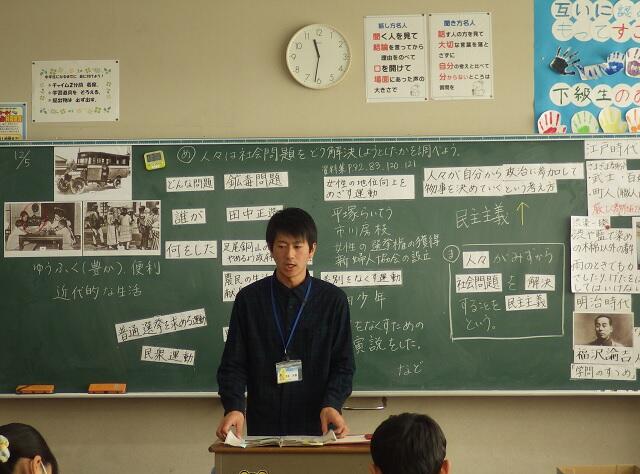 話し方名人
聞く人を見て
結論を言ってから
理由をのべて
口を開けて
場面にあった声の
大きさで
聞き方名人
話す人の方を見て
大切な言葉を落と
さずに
自分の考えと比べて
分からないところは
質問を
互いに
もってすご
下級生の
チャイム2分前 着席。
学習道具を そろえる。
12/5
め 人々は社会問題をどう解決しようとしたかを調べよう。
資料集P92.83.120.121
どんな問題
鉱毒問題
誰が
田中正造
何をした
足尾銅山の
やめるよう政府
農民の生
ゆうふく(豊か)、便利
近代的な生活
普通選挙を求める運動
民衆運動
女性の地位向上を
めざす運動
平塚らいてう
市川房枝
女性の選挙権の獲得
新婦人協会の設立
差別をなくす運動
少年
をなくすための
演説をした。
など
人々が自分から政治に参加して
物事を決めていくという考え方
民主主義
ま 人々がみずから
社会問題を解決
することを民主主義
という。
江戸時代
・武士
・町人
明治時代
福沢諭吉
「学問のすゝめ」